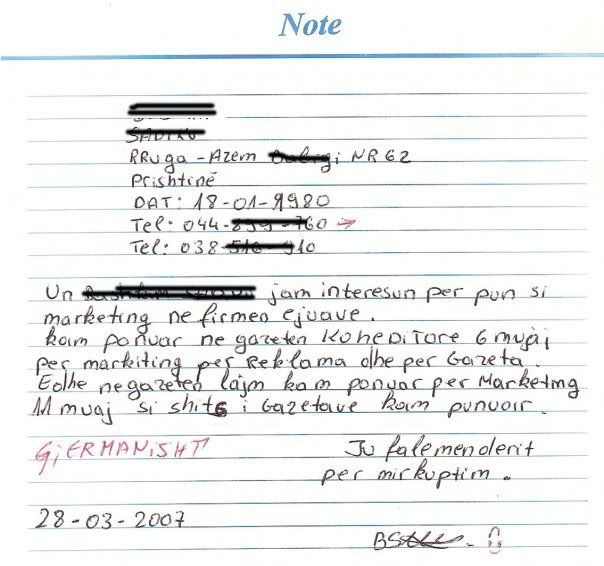 Note
RRuga - Azem NR 62
Prishtinë
DAT: 18-01-1980
Tel: 044-
Tel: 038
Un jam interesun per pun si
marketing ne firmen ejuave.
kam ponuar ne gazeten KOHEDITORE 6 muaj
per markiting per Reklama dhe per Gazeta.
Edhe ne gazeten lajm kam ponuar per Marketing
11 muaj si shitës i Gazetave kam punuar.
GjERMANISHT
Ju falemenderit
per mirkuptim.
28-03-2007